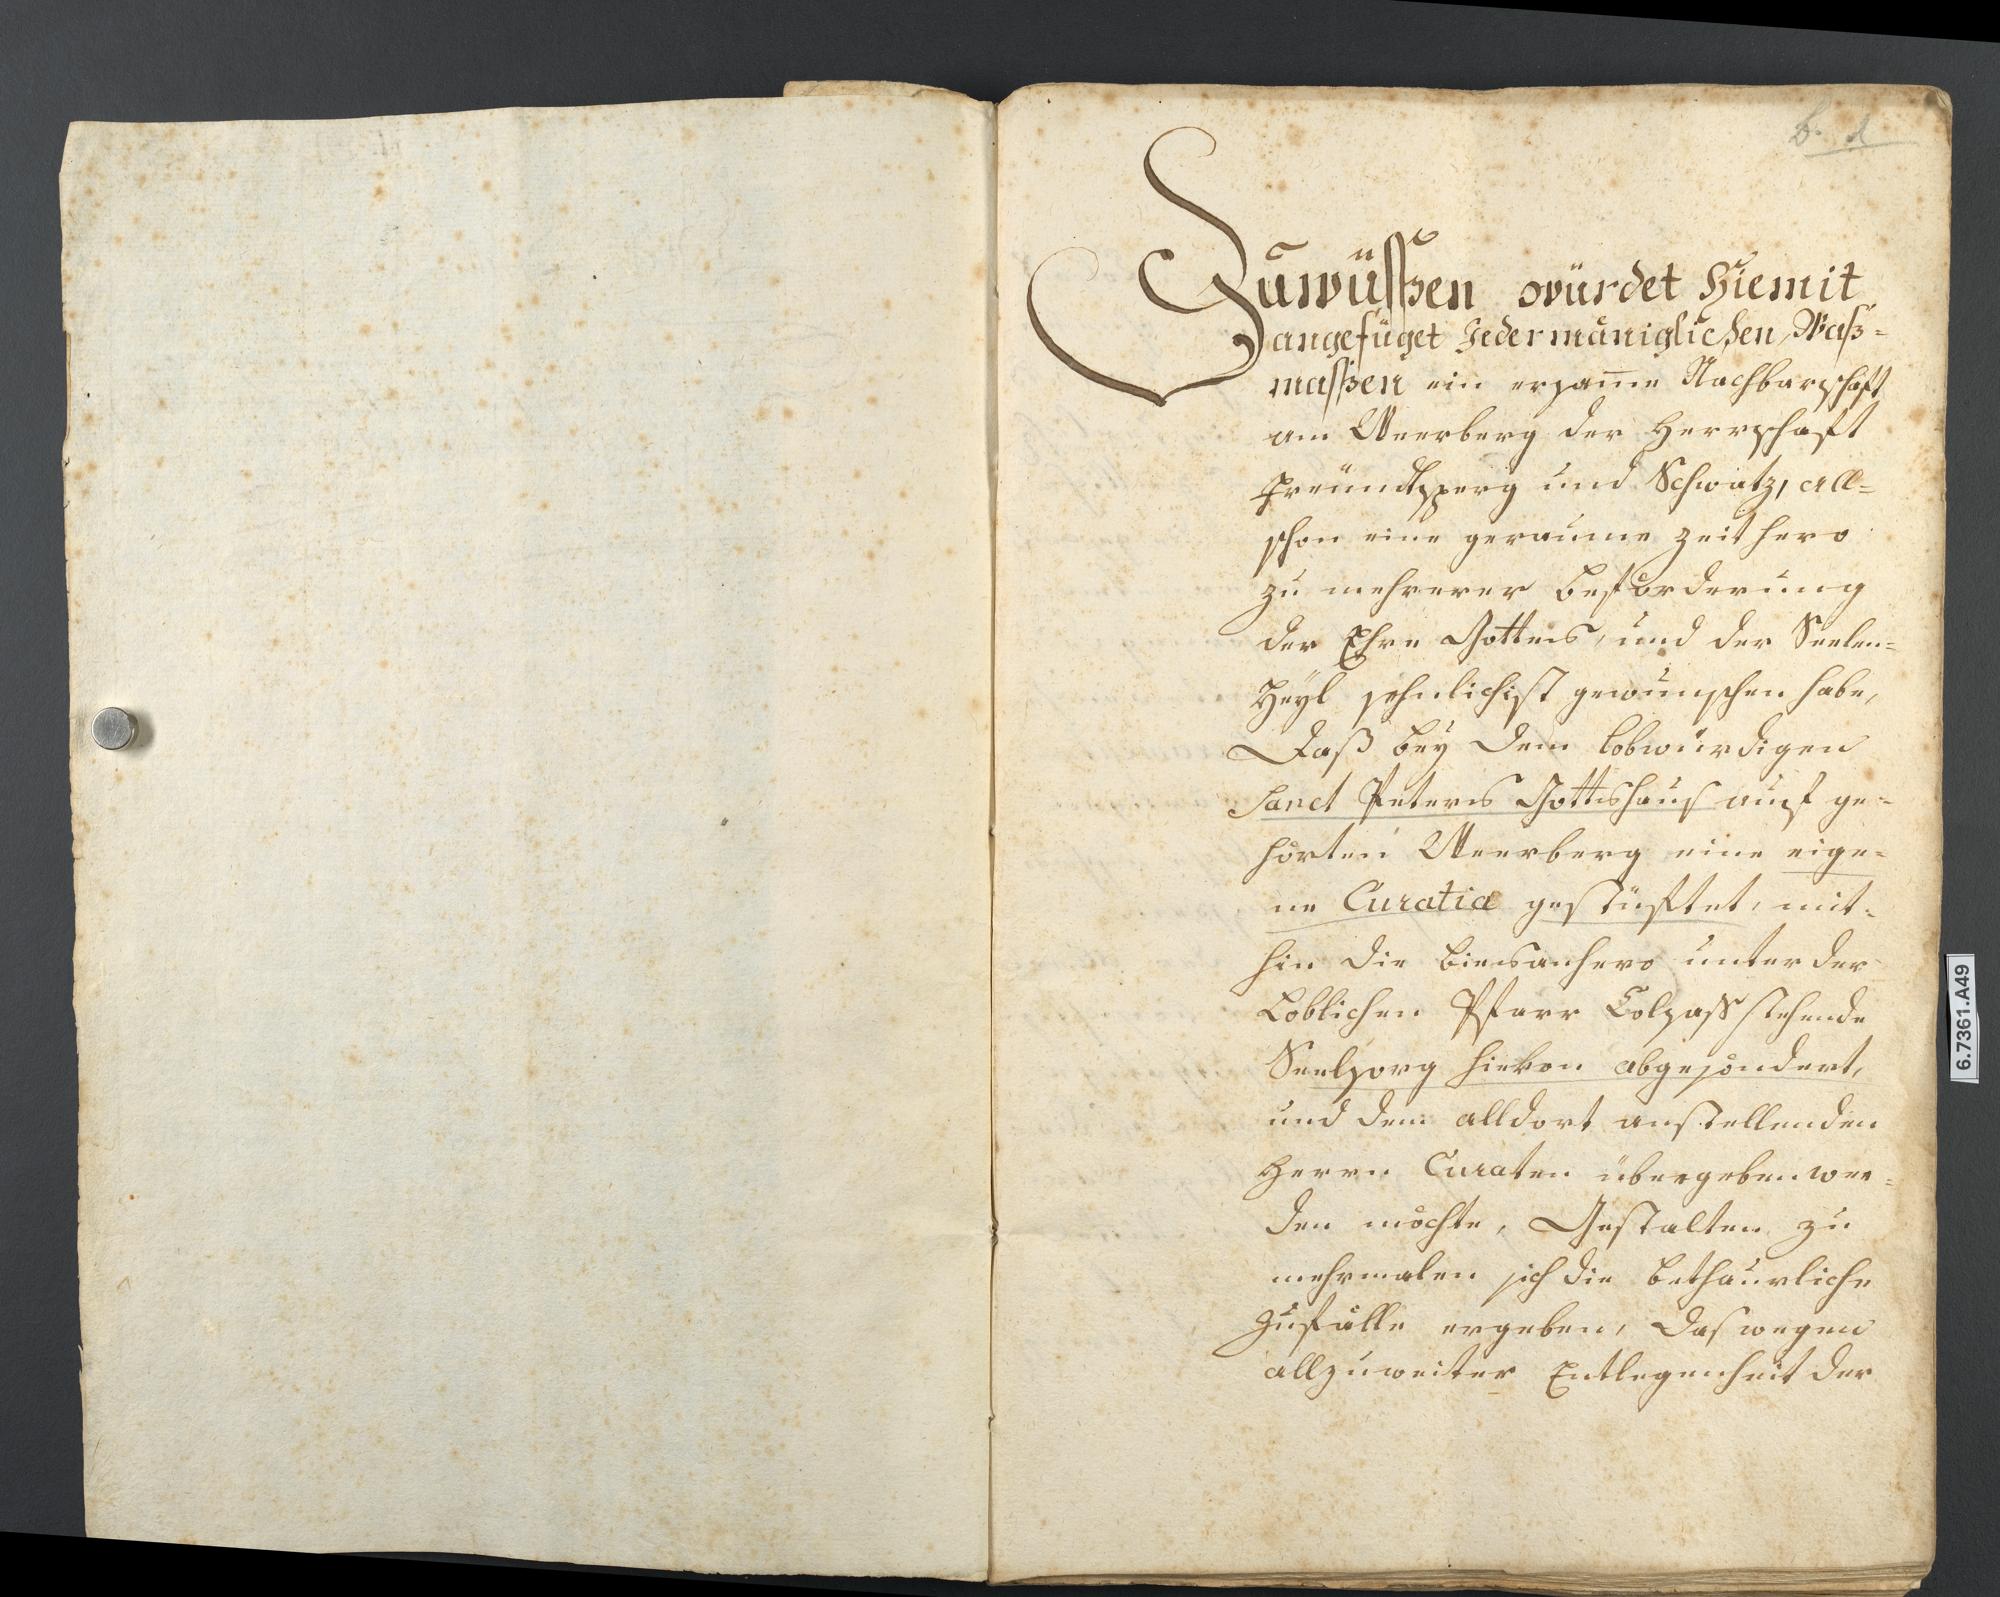 b. d
Zuwüssen würdet Hiemit
angefüget Jedermäniglichen, Waß-
massen ein ersame Nachbarschaft
am Weerberg der Herrschaft
Freündtsperg und Schwatz, all-
schon eine geraume zeit hero
zu mehrerer beförderung
der Ehre Gottes, und der Seelen-
Heyl sehnlichist gewunschen habe,
Daß bey dem lobwürdigen
Sanct Peters Gottshaus auf ge-
hörten Weerberg eine eige-
ne Curatia gestüftet, mit-
hin die biesanhero unter der
Loblichen Pfarr Colsass stehende
Seelsorg hievon abgesöndert,
und dem alldort anstellenden
Herrn Curaten übergeben wer-
den möchte, Gestalten zu
mehrmalen sich die bethaurliche
Zufälle ergeben, das wegen
allzuweiter Entlegenheit der
6.7361.A49